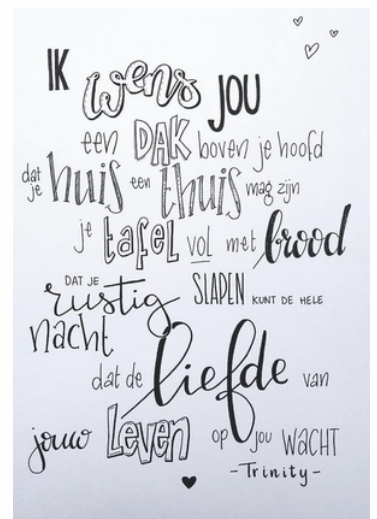 IK wens JOU
een DAK boven je hoofd
dat je huis een thuis mag zijn
je tafel vol met brood
DAT JE rustig SLAPEN KUNT DE HELE
nacht
dat de liefde van
jouw LEVEN op jou WACHT
-Trinity-